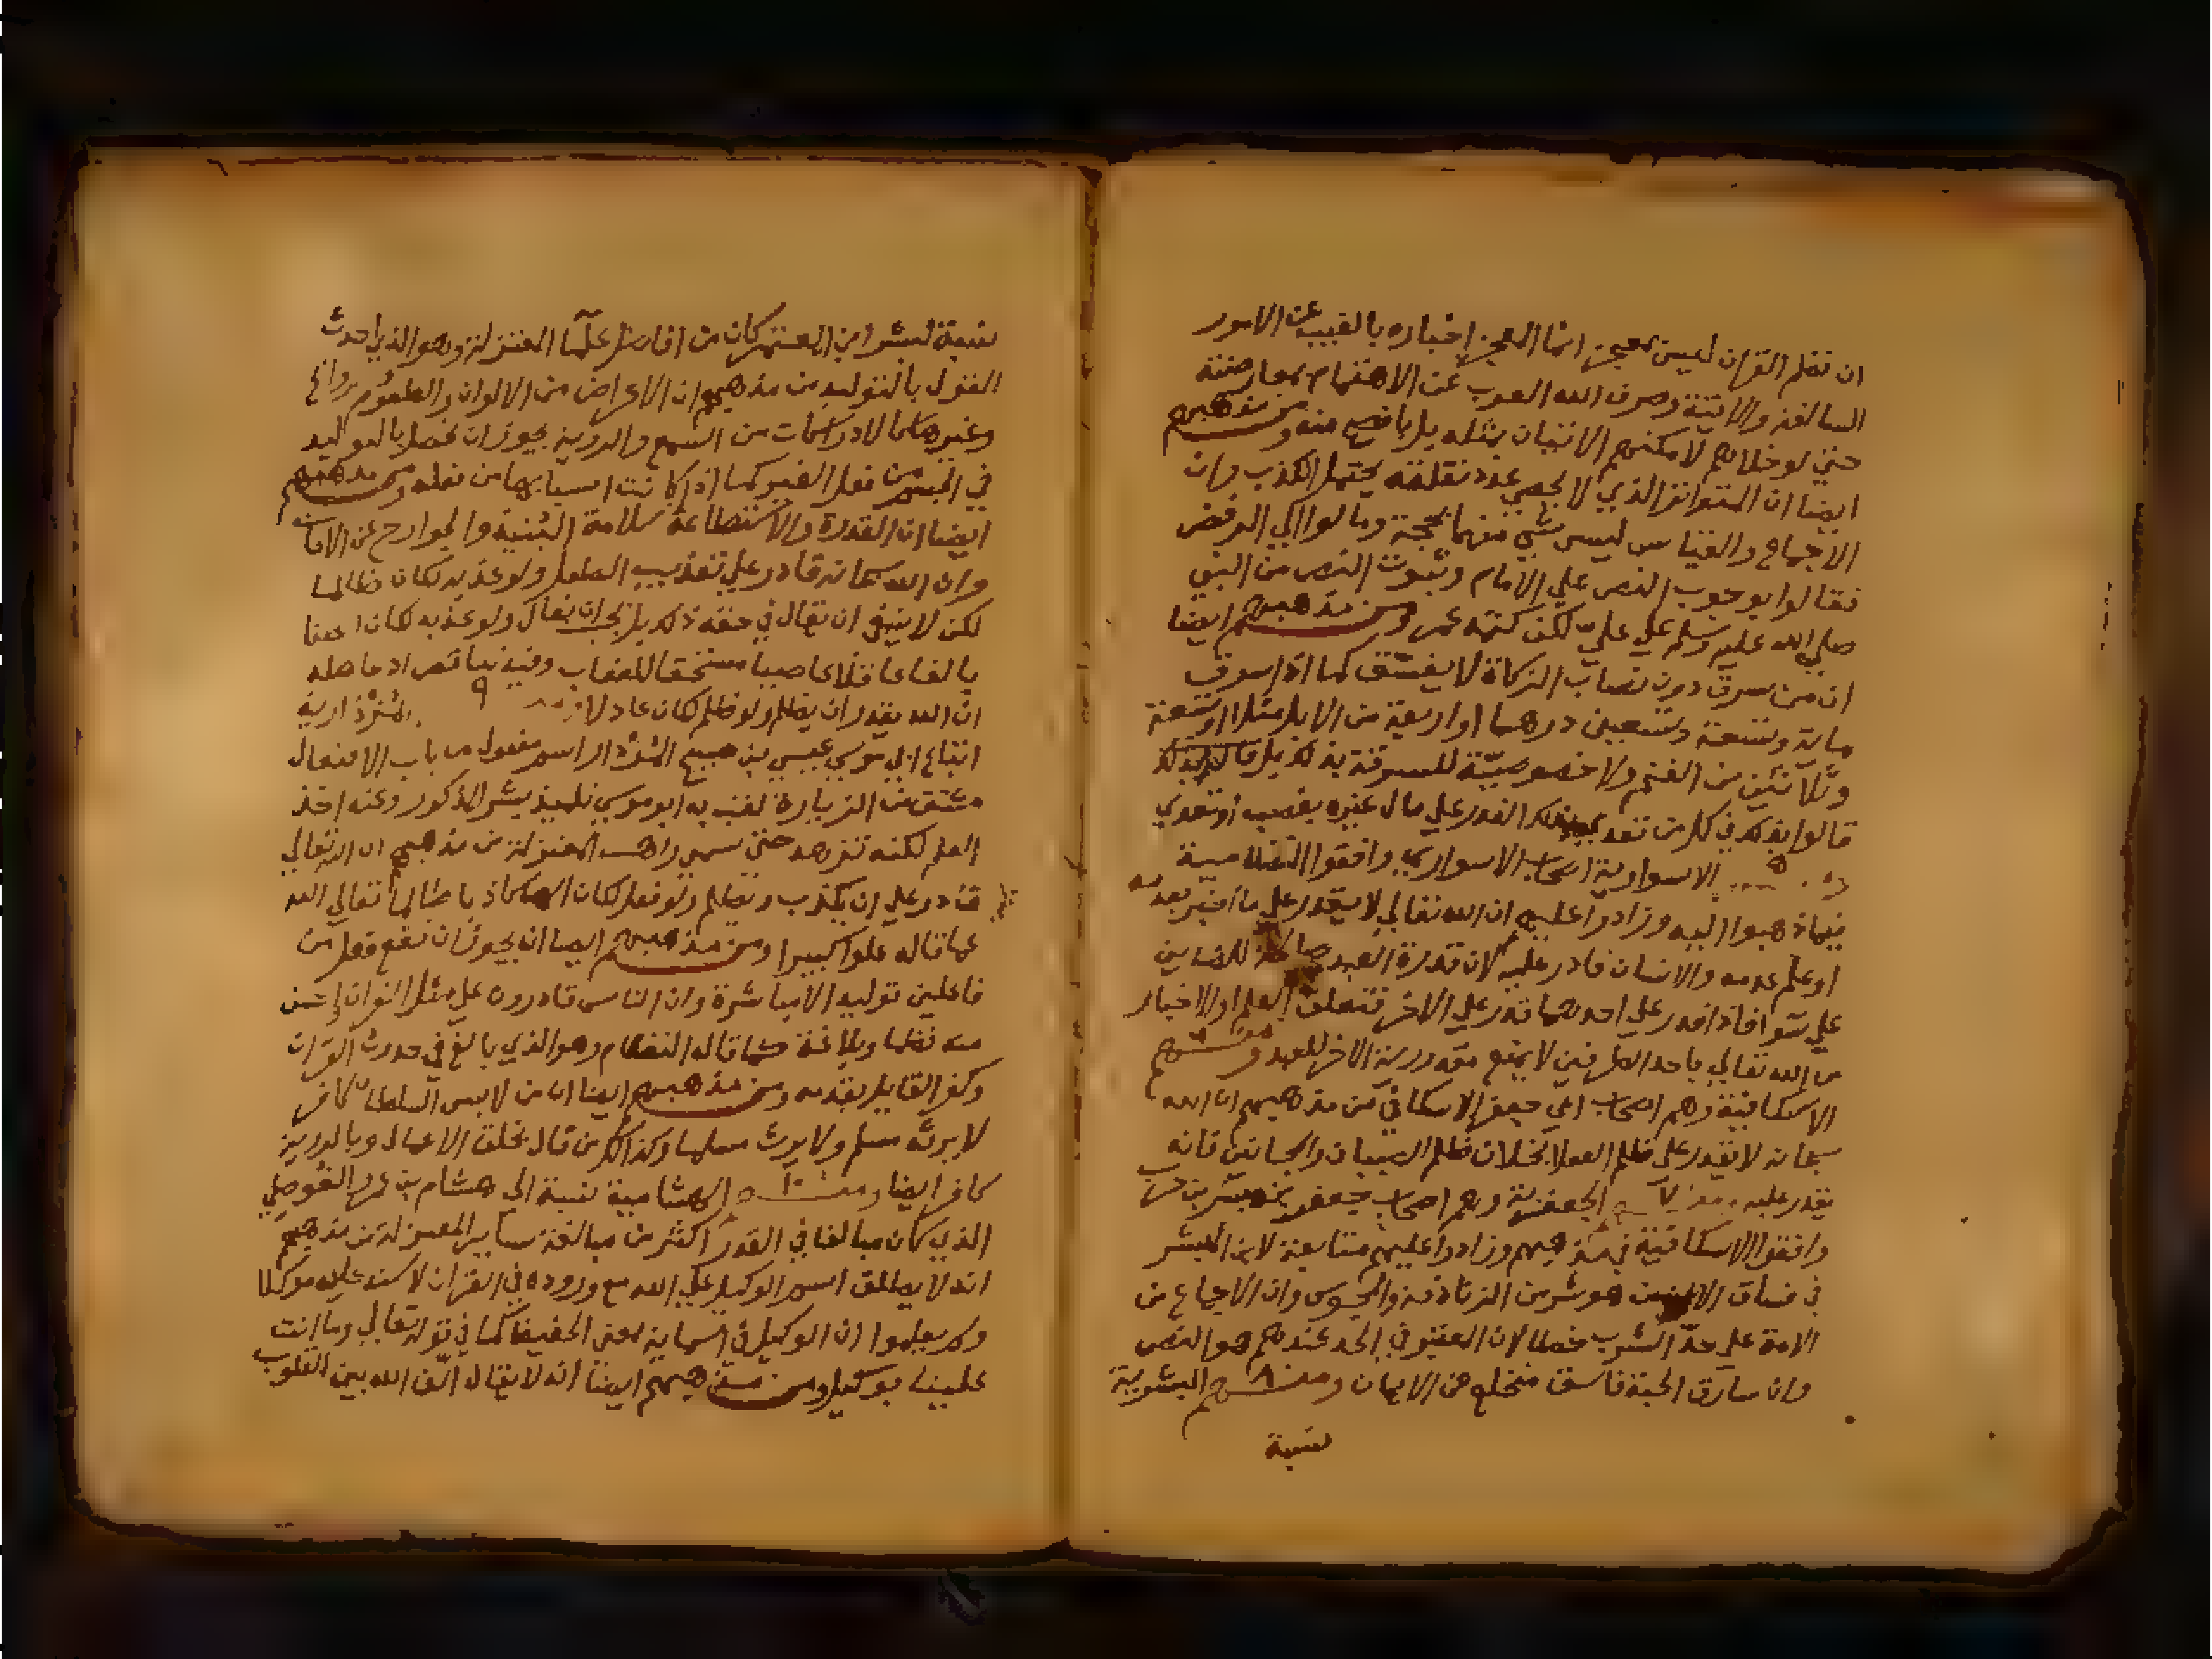 ان نظم القران ليس بمعجز انما المعجز اخباره بالغيب عن الامور
السالفة والاتية وصرف الله العرب عن الاهتمام بمعارضته
حتى لو خلاهم لامكنهم الاتيان بمثله بل بافصح منه ومن مذهبهم
ايضا ان المتواتر الذي لا يحصي عدد نقلته يحتمل الكذب وان
الاجماع والقياس ليس شي منهما بحجة ومالوا الي الرفض
فقالوا بوجوب النص علي الامام وثبوت النص من النبي
صلي الله عليه وسلم علي علي لكن كتمه عمر ومن مذهبهم ايضا
ان من سرق دون نصاب الزكاة لا يفسق كما اذا سرق
ماية وتسعة وتسعين درهما او اربعة من الابل مثلا او تسعة
وثلاثين من الغنم ولا خصوصية للسرقة بذلك بل
قالوا بذلك في كل من تعدي القدر علي مال غيره بغصب او تعدي
الاسوارية اصحاب الاسواري وافقوا النظامية
فيما ذهبوا اليه وزادوا عليهم ان الله تعالي لا يقدر علي ما اخبر بعدمه
او علم عدمه والانسان قادر عليه لان قدرة العبد صالحة للضدين
علي سوا فاذا قدر علي احدهما قدر علي الاخر فتعلق العلم او الاخبار
من الله تعالي باحد الطرفين لا يمنع مقدورية الاخر للعبد ومنهم
الاسكافية وهم اصحاب ابي جعفر الاسكافي من مذهبهم ان الله
سبحانه لا يقدر علي ظلم العقلا بخلاف ظلم الصبيان والمجانين فانه
يقدر عليه الجعفرية وهم اصحاب جعفر بن مبشر بن حرب
وافقوا الاسكافية في مذهبهم وزادوا عليهم متابعة لابن المبشر
في فساق الامة من هو شر من الزنادقة والمجوس وان الاجماع من
الامة علي حد الشرب خطا لان المعتبر في الحد عندهم هو النص
وان سارق الحبة فاسق منخلع من الايمان ومنهم البشرية
نسبة
نسبة لبشر ابن المعتمر كان من افاضل علما المعتزلة وهو الذي احدث
القول بالتوليد من مذهبهم ان الاعراض من الالوان والطعوم وروائح
وغيرها كالادراكات من السمع والروية يجوز ان تحصل بالتوليد
في الجسم من فعل الغير كما اذا كانت اسبابها من فعله ومن مذهبهم
ايضا ان القدرة والاستطاعة سلامة البنية والجوارح عن الافات
وان الله سبحانه قادر علي تعذيب الطفل ولو عذبه لكان ظالما
لكن لا ينبغي ان يقال في حقه ذلك بل يجب ان يقال ولو عذبه لكان
بالغا عاقلا عاصيا مستحقا للعقاب وفيه تناقض اذ حاصله
ان الله يقدر ان يظلم ولو ظلم لكان عادلا ٩ المزدارية
اتباع ابي موسي عيسي بن صبيح المزدار اسم مفعول من باب الافتعال
مشتق من الزيارة لقب به ابو موسي تلميذ بشر المذكور وعنه اخذ
العلم لكنه تزهد حتي سمي راهب المعتزلة من مذهبهم ان الله تعالي
قادر علي ان يكذب ويظلم ولو فعل لكان الها كاذبا ظالما تعالي الله
عما قاله علوا كبيرا ومن مذهبهم ايضا ان يجوز ان تقع فعل من
فاعلين توليدا لا مباشرة وان الناس قادرون علي مثل القران واحسن
منه نظما وبلاغة كما قاله النظام وهو الذي بالغ في حدوث القران
وكفر القايل بقدمه ومن مذهبهم ايضا ان من لابس السلطان كافر
لا يرثه مسلم ولا يورث مسلما وكذا كل من قال بخلق الاعمال وبالروية
كافر ايضا ومنهم ١٠ الهشامية نسبة الي هشام بن عمرو الفوطي
الذي كان مبالغا في القدر اكثر من مبالغة ساير المعتزلة من مذهبهم
انه لا يطلق اسم الوكيل علي الله مع وروده في القران لاستدعايه موكلا
ولم يعلموا ان الوكيل في اسمايه بمعني الحفيظ كما في قوله تعالي وما انت
عليهم بوكيل ومن مذهبهم ايضا انه لا يقال الف الله بين القلوب